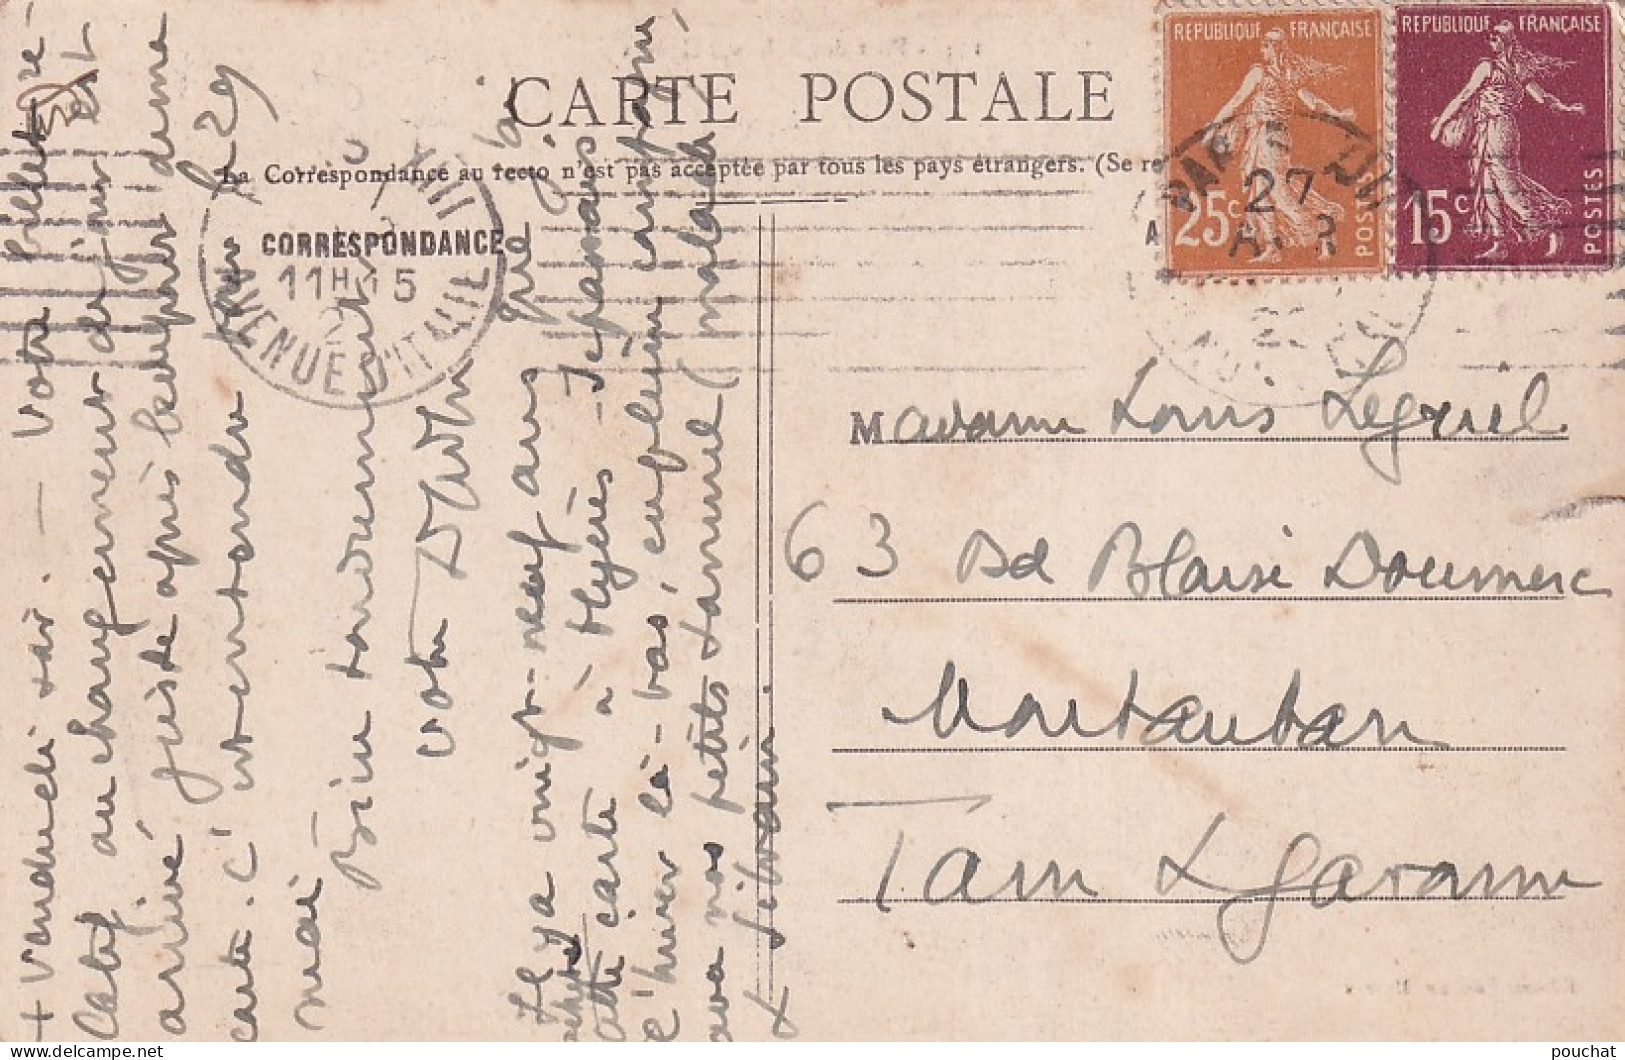 CARTE POSTALE
La Correspondance au recto n'est pas acceptée par tous les pays étrangers. (Se re
CORRESPONDANCE
REPUBLIQUE FRANÇAISE
25c
POSTES
REPUBLIQUE FRANÇAISE
15c
POSTES
27
XIII
11H 15
AVENUE D'ITALIE
Madame Louis
63 Bd Blaise Doumerc
Montauban
Tarn & Garonne
Il y a vingt-neuf ans que j'ai
acheté
cette carte à Hyères - Je passais
l'hiver là-bas, en pleine campagne,
avec nos petits
+ vendredi soir. — Votre
au changement de jour et
arrivé juste après le départ de ma
carte. C'est entendu pour le 29
mai
Bien tendrement
votre
pouchat